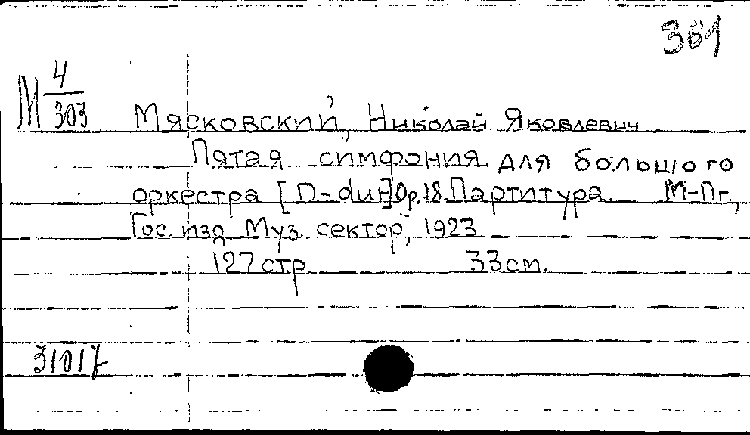 361
М 4/303
Мясковский, Николай Яковлевич
Пятая симфония для большого
оркестра [D-dur] Op.18. Партитура. М-Пг,
Гос. изд. Муз. сектор, 1923
127 стр. 33 см.
31017